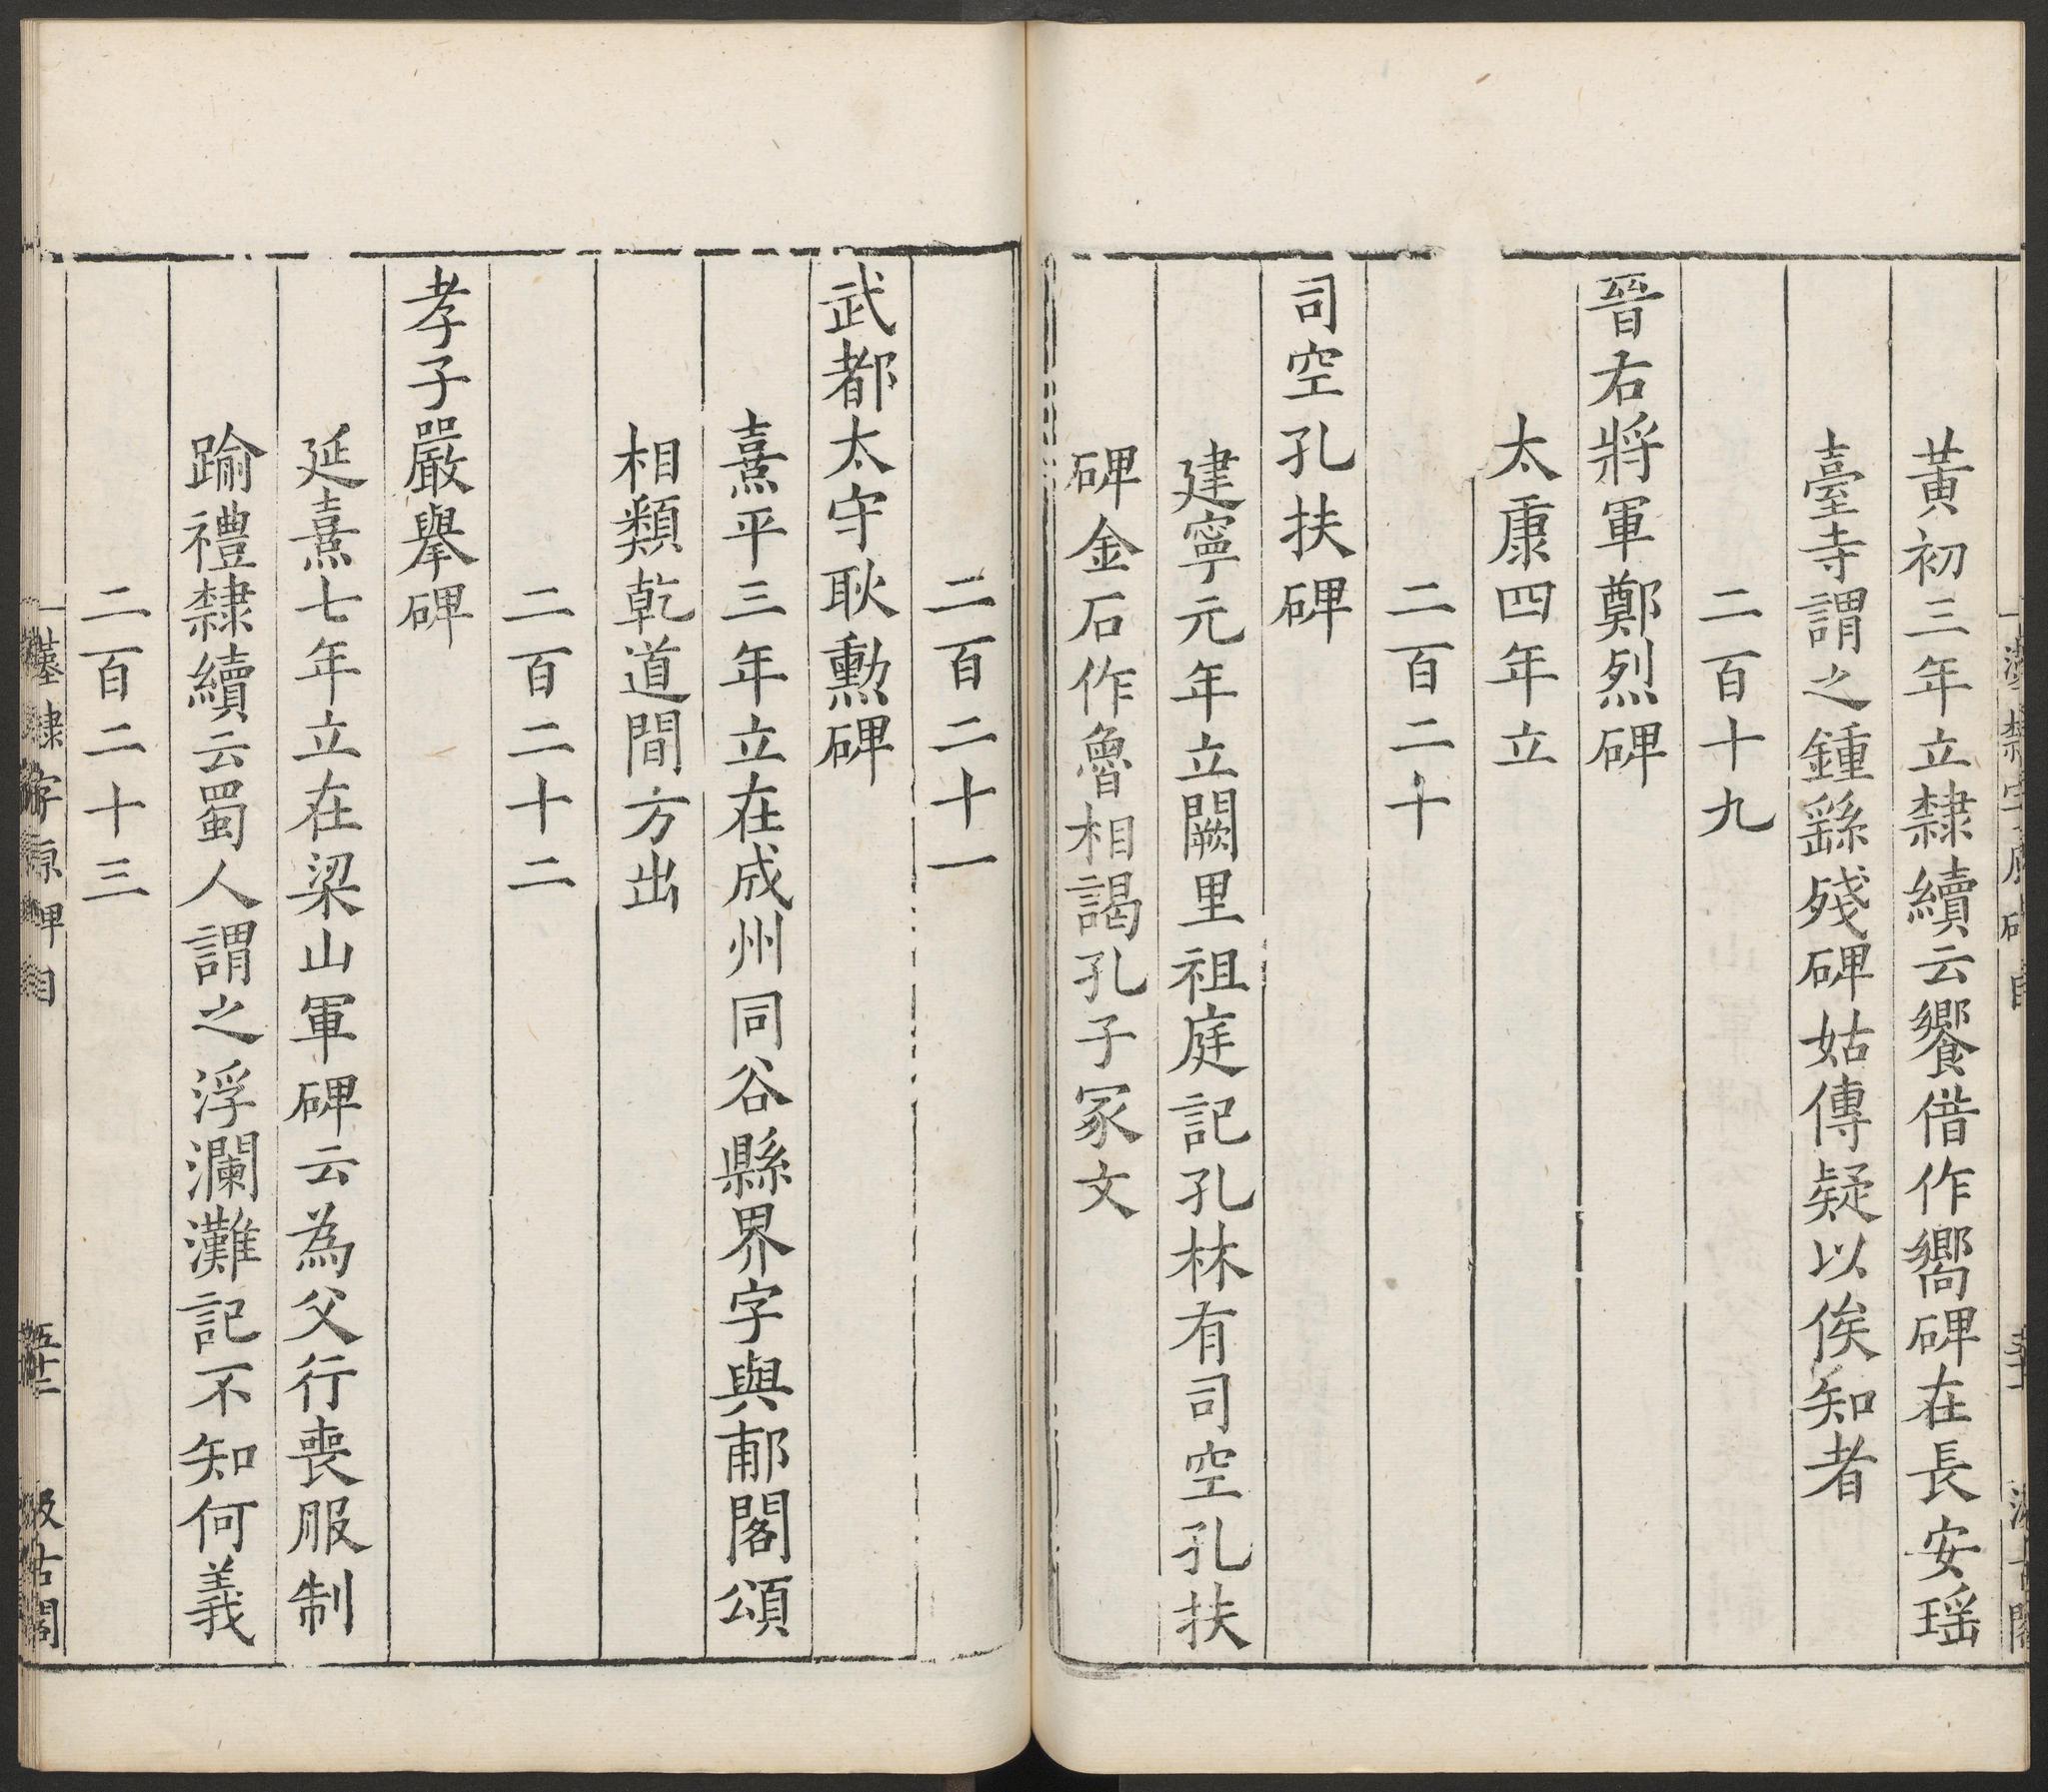 黃初三年立隸續云饗借作嚮碑在長安瑶
臺寺謂之鍾繇殘碑姑傳疑以俟知者
二百十九
晉右將軍鄭烈碑
太康四年立
二百二十
司空孔扶碑
建寧元年立闕里祖庭記孔林有司空孔扶
碑金石作魯相謁孔子冢文
二百二十一
武都太守耿勳碑
熹平三年立在成州同谷縣界字與郙閣頌
相類乾道間方出
二百二十二
孝子嚴舉碑
延熹七年立在梁山軍碑云為父行喪服制
踰禮隸續云蜀人謂之浮瀾灘記不知何義
二百二十三
隸字原碑目
汲古閣